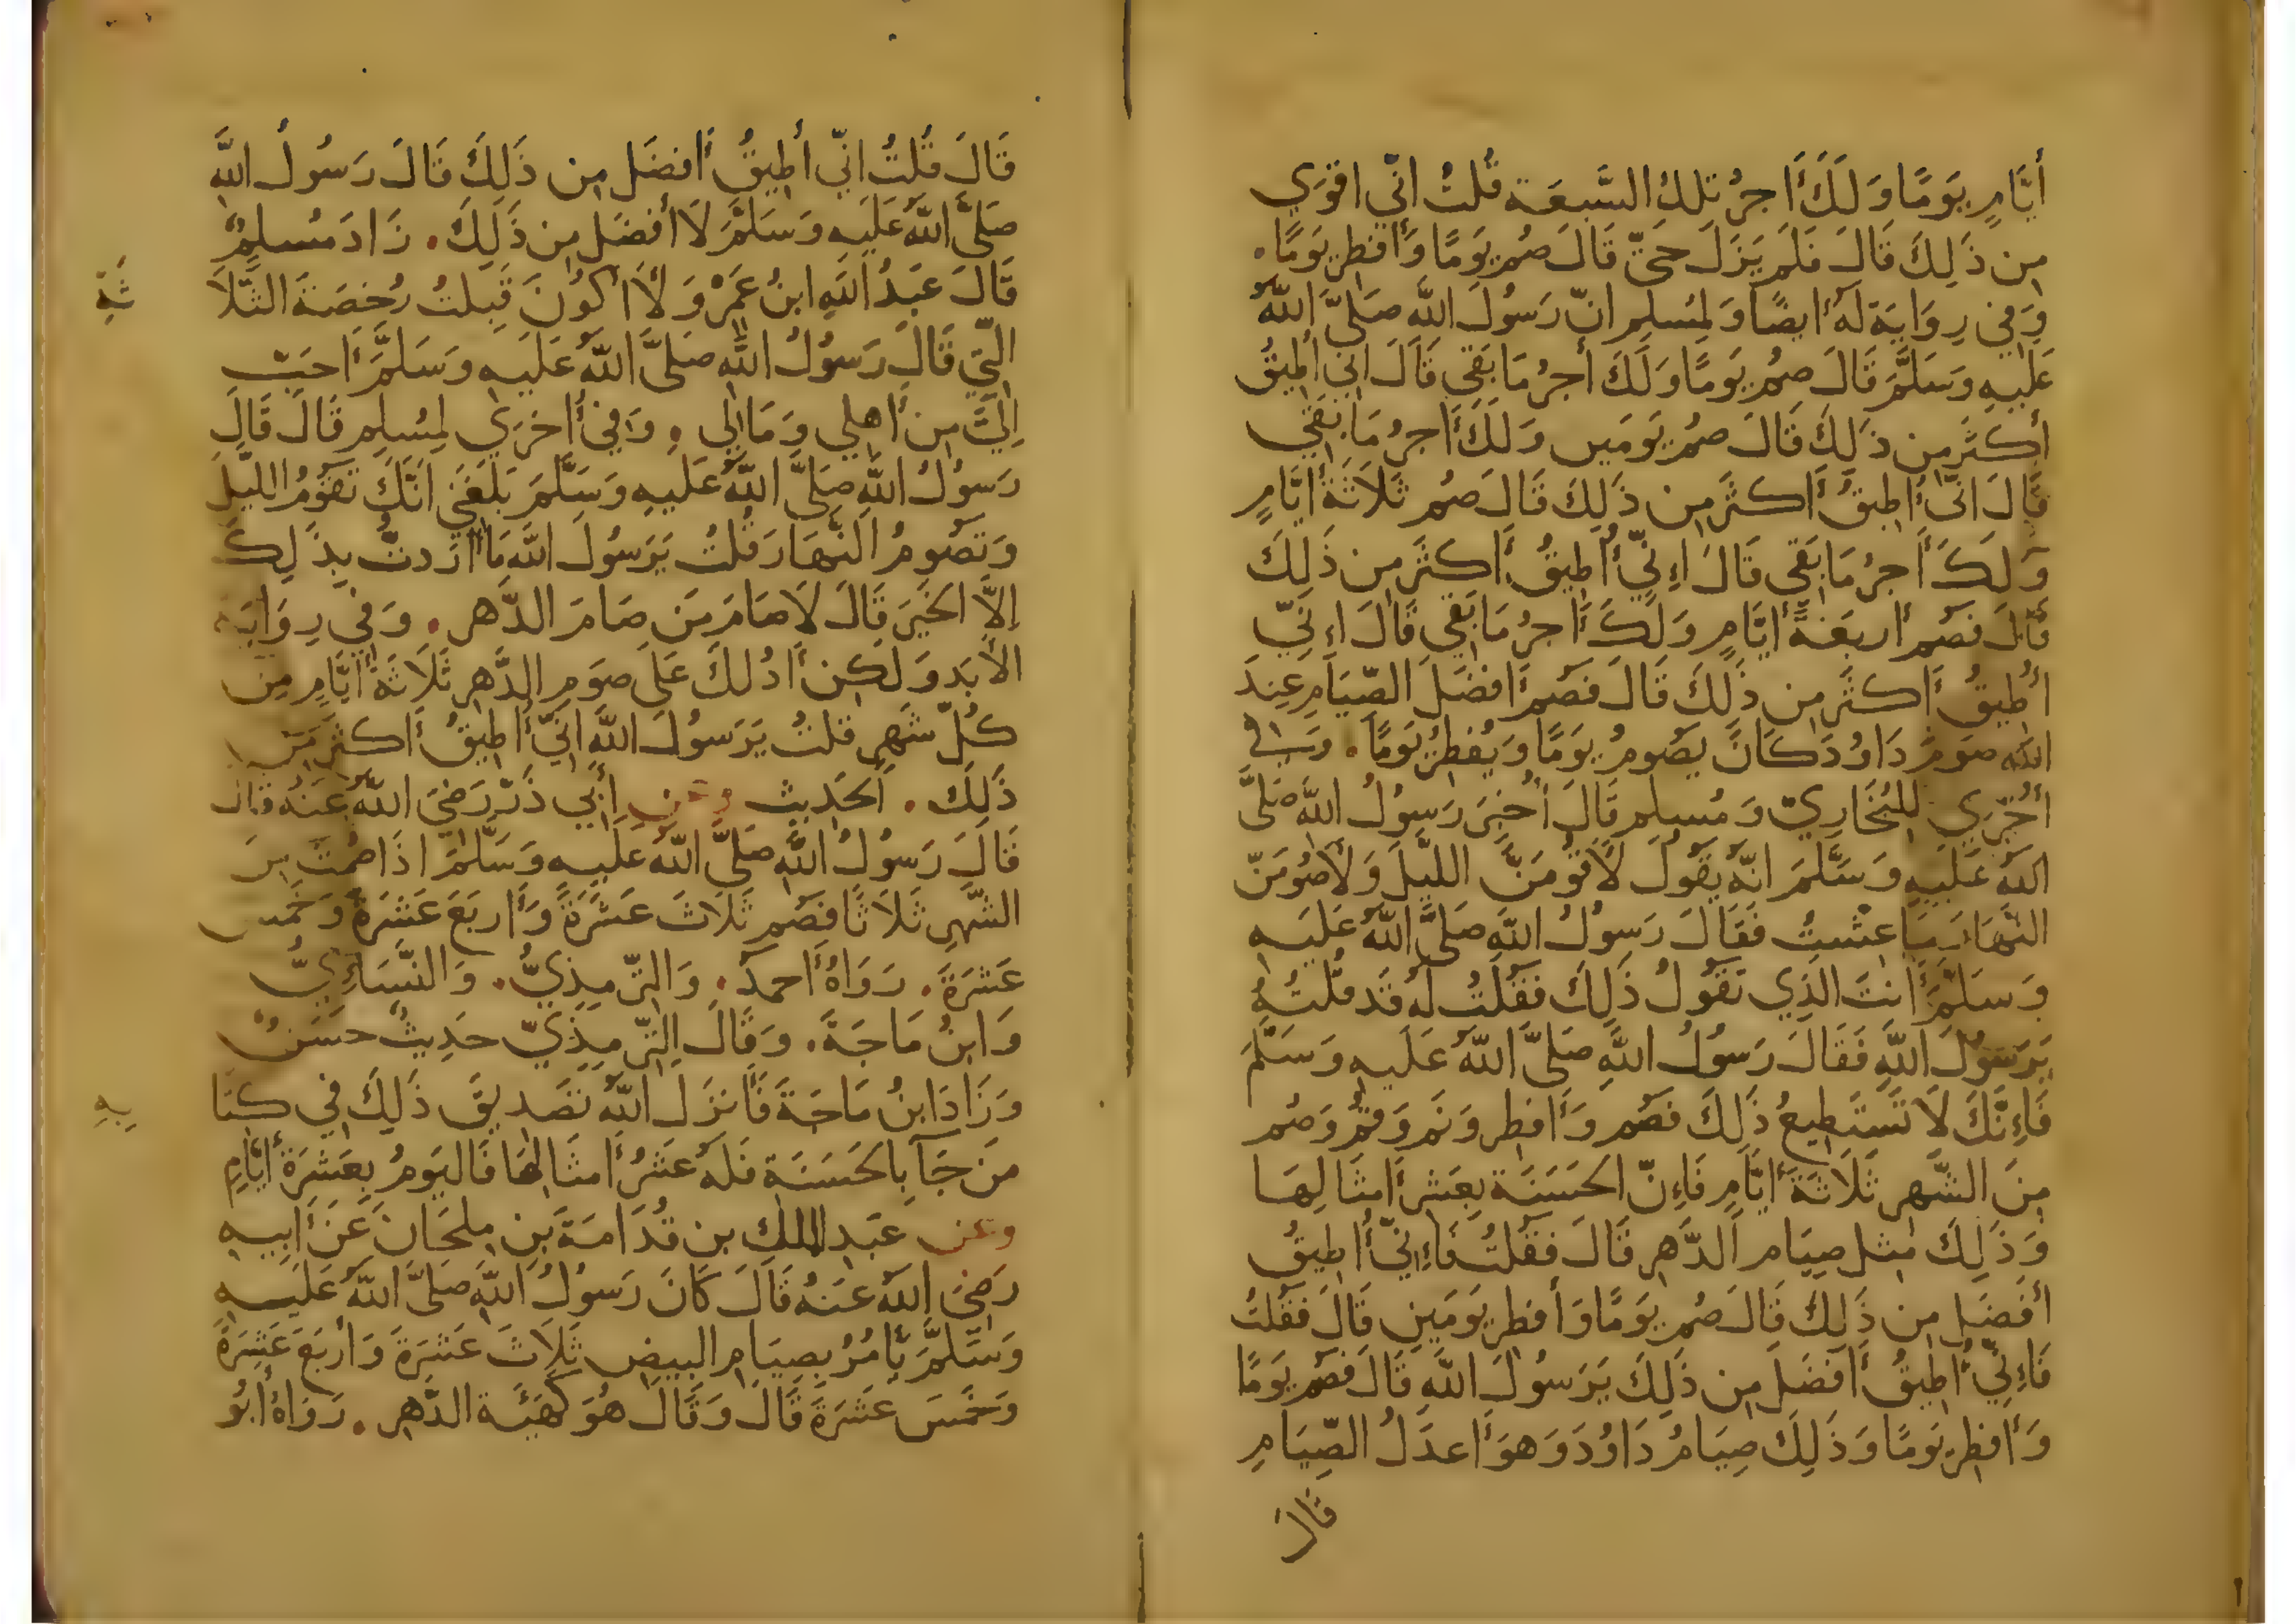 أَيَّامٍ يَوَمًا وَلَكَ أَجرُ تِلكَ السَّبعَة قُلتُ انِّي اقوَي
مِن ذَلِكَ قَالَ فَلَم يَزَل حَتّي قَالَ صُم يَومًا وَأَفطِر يَومًا.
وَفِي رِوَايَة لَهُ ايضًا وَلِمُسلِم انّ رَسُولَ اللَّه صَلَّي اللَّهُ
عَلَيهِ وَسَلَّمَ قَالَ صُم يَومًا وَلَكَ أَجرُ مَا بَقَي قَالَ اِنّي أُطِيقُ
أَكثَرَ مِن ذَلِكَ قَالَ صُم يَومَين وَلَكَ أَجرُ مَا بَقَي
قَالَ انّي أُطِيقُ أَكثَرَ مِن ذَلِكَ قَالَ صُم ثَلَاثَةَ أَيَّامٍ
وَلَكَ أَجرُ مَا بَقَي قَالَ إِنِّي أُطِيقُ أَكثَرَ مِن ذَلِكَ
قَالَ فَصُم أَربَعَةً أَيَّامٍ وَلَكَ أَجرُ مَا بَقَي قَالَ إِنِّي
أُطِيقُ أَكثَرَ مِن ذَلِكَ قَالَ فَصُم أَفضَلَ الصِّيَامِ عِندَ
اللَّه صَومَ دَاوُدَ كَانَ يَصُومُ يَومًا وَيُفطِرُ يَومًا. وَفِي
أُخرَي لِلبُخَارِيّ وَمُسلِم قَالَ أُخبِرَ رَسُولُ اللَّه صَلَّي
اللَّهُ عَلَيهِ وَسَلَّمَ انَّهُ يَقُولُ لَأَقُومَنَّ اللَّيلَ وَلَأَصُومَنّ
النَّهَارَ مَا عِشتُ فَقَالَ رَسُولُ اللَّهِ صَلَّي اللَّهُ عَلَيهِ
وَسَلَّمَ أَنتَ الَّذِي تَقُولُ ذَلِكَ فَقُلتُ لَهُ قَد قُلتُهُ
يَرَسُولَ اللَّهِ فَقَالَ رَسُولُ اللَّهِ صَلَّي اللَّهُ عَلَيهِ وَسَلَّمَ
فَإِنَّكَ لَا تَستَطِيعُ ذَلِكَ فَصُم وَأَفطِر وَنَم وَقُم وَصُم
مِنَ الشَّهرِ ثَلَاثَةَ أَيَّامٍ فَإِنّ الحَسَنَة بِعَشرِ أَمثَالِهَا
وَذَلِكَ مِثل صِيَام الدَّهرِ قَالَ فَقُلتُ فَإِنِّي أُطِيقُ
أَفضَلَ مِن ذَلِكَ قَالَ صُم يَومًا وَأَفطِر يَومَينِ قَالَ فَقُلتُ
فَإِنِّي أُطِيقُ أَفضَلَ مِن ذَلِكَ يَرَسُولَ اللَّهِ قَالَ فَصُم يَومًا
وَأَفطِر يَومًا وَذَلِكَ صِيَامُ دَاوُدَ وَهوَ أَعدَلُ الصِّيَامِ
قَالَ
قَالَ قُلتُ انِّي أُطِيقُ أَفضَل مِن ذَلِكَ قَالَ رَسُولُ اللَّه
صَلَّي اللَّهُ عَلَيهِ وَسَلَّمَ لَا أَفضَلَ مِن ذَلِكَ. زَادَ مُسلِمٌ
قَالَ عَبدُ اللَّهِ ابنُ عَمرٍو لَأَن أَكُونَ قَبِلتُ رُخصَةَ الثَّلَا
ثَةِ
الَّتِي قَالَ رَسُولُ اللَّه صَلَّي اللَّهُ عَلَيهِ وَسَلَّمَ أَحَبّ
إِلَيَّ مِن أَهلِي وَمَالِي. وَفِي أُخرَي لِمُسلِم قَالَ قَالَ
رَسُولُ اللَّهِ صَلَّي اللَّهُ عَلَيهِ وَسَلَّمَ بَلَغَنِي انَّكَ تَقُومُ اللَّيلَ
وَتَصُومُ النَّهَارَ قُلتُ يَرَسُولَ اللَّه مَا أَرَدتُّ بِذَلِكَ
إِلَّا الخَيرَ قَالَ لَا صَامَ مَن صَامَ الدَّهر. وَفِي رِوَايَة
الأَبَد وَلَكِن أَدُلكَ عَلَي صَومِ الدَّهرِ ثَلَاثَةَ أَيَّامٍ مِن
كُلّ شَهرٍ قُلتُ يَرَسُولَ اللَّهِ انّي أُطِيقُ أَكثَر مِن
ذَلِكَ. الحَدِيث وعَن أَبِي ذَرّ رَضَيَ اللَّهُ عَنهُ قَالَ
قَالَ رَسُولُ اللَّهِ صَلَّي اللَّهُ عَلَيهِ وَسَلَّمَ اذَا صُمتَ مِنَ
الشَّهرِ ثَلَاثًا فَصُم ثَلَاثَ عَشَرَةً وَأَربَعَ عَشرَةَ وَخَمس
عَشَرَةَ. رَوَاهُ أَحمدُ. وَالتِّرمِذِيُّ. وَالنَّسَاءِيُّ
وَابنُ مَاجَةَ. وَقَالَ التِّرمِذِيّ حَدِيثُ حَسَنٌ
وَزَادَ ابنُ مَاجَةَ فَأَنزَلَ اللَّهُ تَصدِيقَ ذَلِكَ فِي كِتَا
بِهِ
مَن جَآ بِالحَسَنَةِ فَلَهُ عَشرُ أَمثَالِهَا فَاليَومُ بِعَشرَةَ أَيَّامٍ
وعن عَبدِ المَلِك بن قُدَامَةَ بنِ مِلحَانَ عَن أَبِيهِ
رَضَيَ اللَّهُ عَنهُ قَالَ كَانَ رَسُولُ اللَّهِ صَلَّي اللَّهُ عَلَيهِ
وَسَلَّمَ يَأمُرُ بِصِيَامِ البِيضِ ثَلَاثَ عَشَرَةَ وَأَربَعَ عَشَرَةَ
وَخَمسَ عَشَرَةَ قَالَ وَقَالَ هُوَ كَهَيئَة الدَّهرِ. رَوَاهُ أَبُو